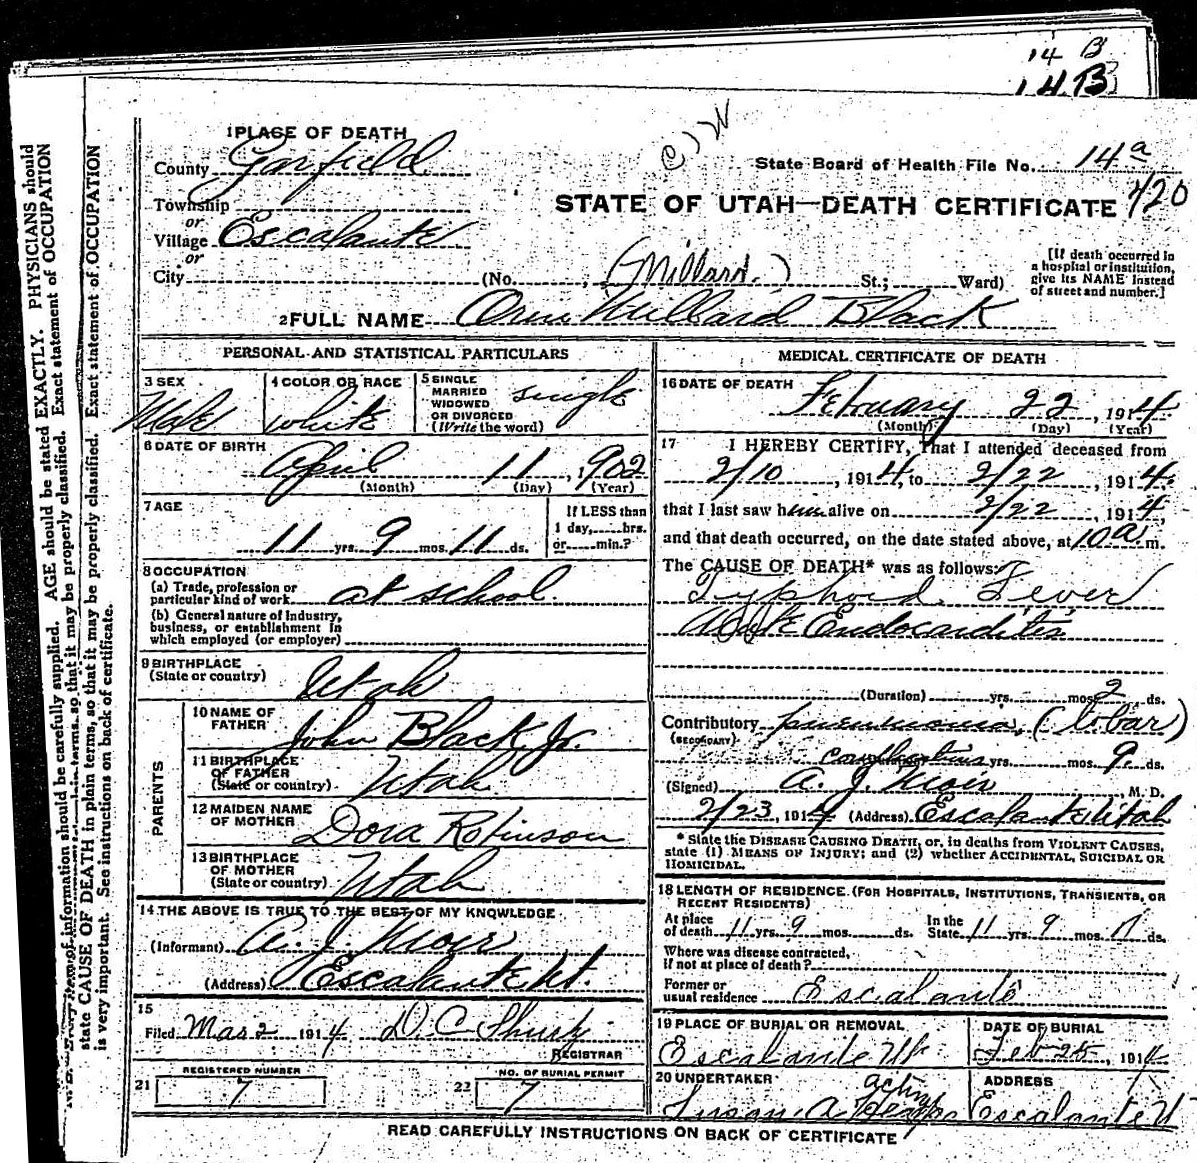 14 B
14 B
1 PLACE OF DEATH
County Garfield
Township
or
Village Escalante
or
City (No. ; (Millard.) St.; Ward)
State Board of Health File No. 14 a
STATE OF UTAH—DEATH CERTIFICATE 420
[If death occurred in
a hospital or institution,
give its NAME instead
of street and number.]
2 FULL NAME Orin Willard Black
PERSONAL AND STATISTICAL PARTICULARS
3 SEX
Male
4 COLOR OR RACE
white
5 SINGLE
MARRIED
WIDOWED
OR DIVORCED
(Write the word)
single
6 DATE OF BIRTH
April 11, 1902
(Month) (Day) (Year)
7 AGE
11 yrs. 9 mos. 11 ds.
If LESS than
1 day, hrs.
or min.?
8 OCCUPATION
(a) Trade, profession or
particular kind of work. at school.
(b) General nature of industry,
business, or establishment in
which employed (or employer)
9 BIRTHPLACE
(State or country) Utah
PARENTS
10 NAME OF
FATHER John Black Jr.
11 BIRTHPLACE
OF FATHER
(State or country) Utah
12 MAIDEN NAME
OF MOTHER Dora Robinson
13 BIRTHPLACE
OF MOTHER
(State or country) Utah
14 THE ABOVE IS TRUE TO THE BEST OF MY KNOWLEDGE
(Informant) A. J.
(Address) Escalante Ut.
15
Filed Mar 2 1914 D. C.
REGISTRAR
21 REGISTERED NUMBER
7
22 NO. OF BURIAL PERMIT
7
MEDICAL CERTIFICATE OF DEATH
16 DATE OF DEATH
February 22, 1914
(Month) (Day) (Year)
17 I HEREBY CERTIFY, That I attended deceased from
2/10, 1914, to 2/22, 1914.
that I last saw him alive on 2/22, 1914,
and that death occurred, on the date stated above, at 10 a m.
The CAUSE OF DEATH* was as follows:
Typhoid Fever
Acute Endocarditis
(Duration) yrs. mos. 2 ds.
Contributory pneumonia, (lobar)
(SECONDARY)
yrs. mos. 9. ds.
(Signed) A. J. , M. D.
2/23, 1914 (Address) Escalante Utah
* State the DISEASE CAUSING DEATH, or, in deaths from VIOLENT CAUSES,
state (1) MEANS OF INJURY; and (2) whether ACCIDENTAL, SUICIDAL OR
HOMICIDAL.
18 LENGTH OF RESIDENCE (FOR HOSPITALS, INSTITUTIONS, TRANSIENTS, OR
RECENT RESIDENTS)
At place
of death 11 yrs. 9 mos. ds. In the
State 11 yrs. 9 mos. 11 ds.
Where was disease contracted,
if not at place of death?
Former or
usual residence Escalante
19 PLACE OF BURIAL OR REMOVAL
Escalante Ut.
DATE OF BURIAL
Feb 25, 1914
20 UNDERTAKER acting
Susan A.
ADDRESS
Escalante U
READ CAREFULLY INSTRUCTIONS ON BACK OF CERTIFICATE
of information should be carefully supplied. AGE should be stated EXACTLY. PHYSICIANS should
state CAUSE OF DEATH in plain terms, so that it may be properly classified. Exact statement of OCCUPATION
is very important. See instructions on back of certificate.